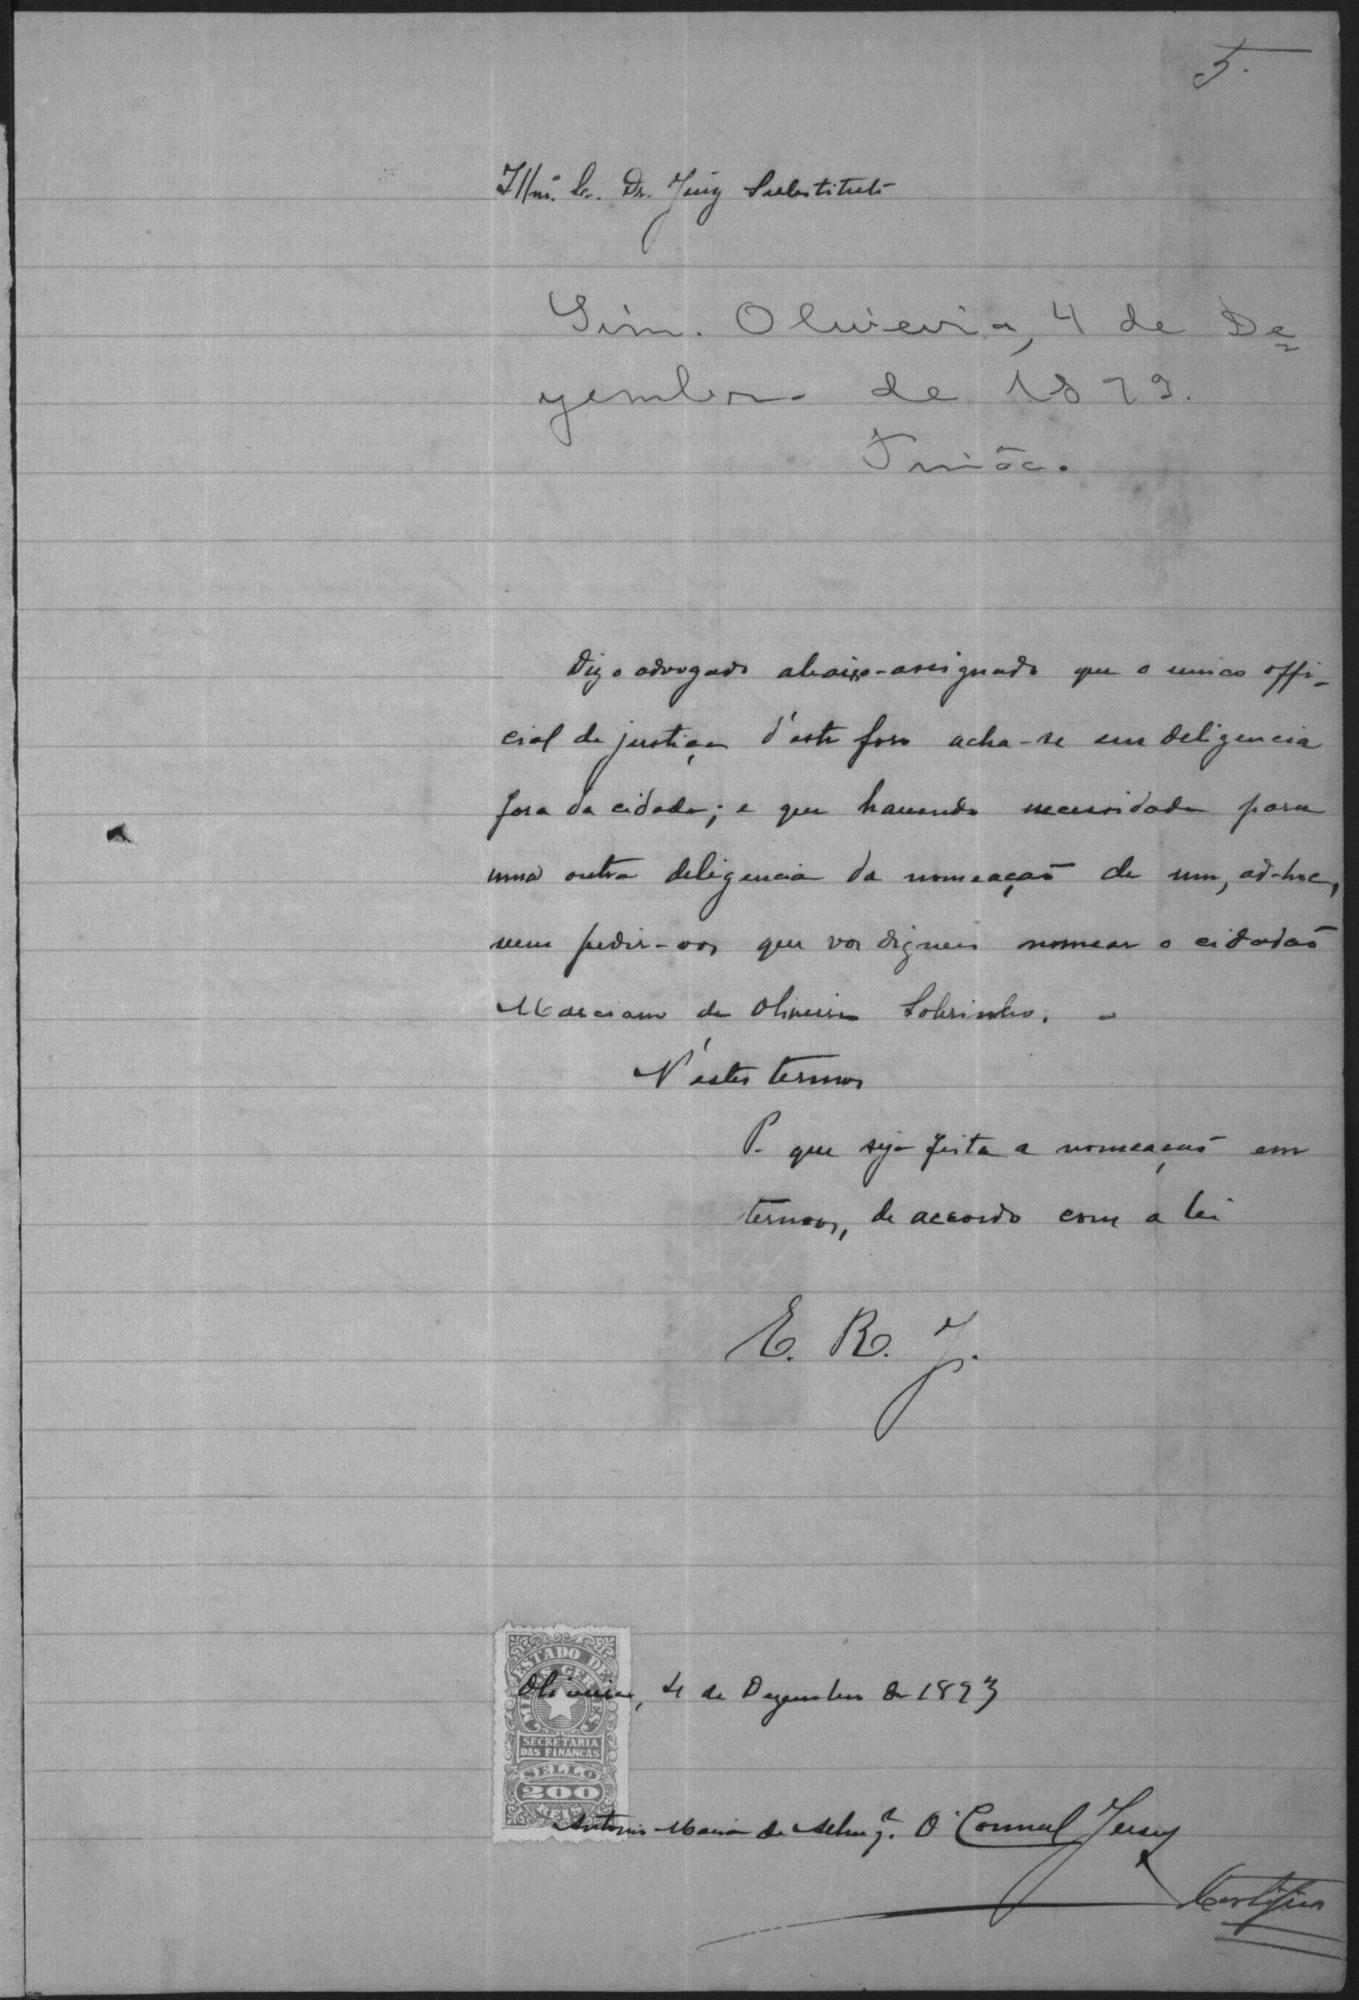 5.
Illmº. Sr. Dr. Juiz Substituto
Sim. Oliveira, 4 de De
zembro de 1893.
Diz o advogado abaixo-assignado que o unico offi-
cial de justiça d'este foro acha-se em deligencia
fora da cidade; e que havendo necessidade para
uma outra deligencia da nomeação de um, ad-hoc,
vem pedir-vos que vos digneis nomear o cidadão
Marciano de Oliveira Sobrinho.
N'estes termos
P. que seja feita a nomeação em
termos, de accordo com a lei
E. R. J.
ESTADO DE
MINAS GERAES
Oliveira, 4 de Dezembro de 1893
SECRETARIA
DAS FINANÇAS
SELLO
200
REIS
Antonio Maria de O'Connel Jersey
Certifico